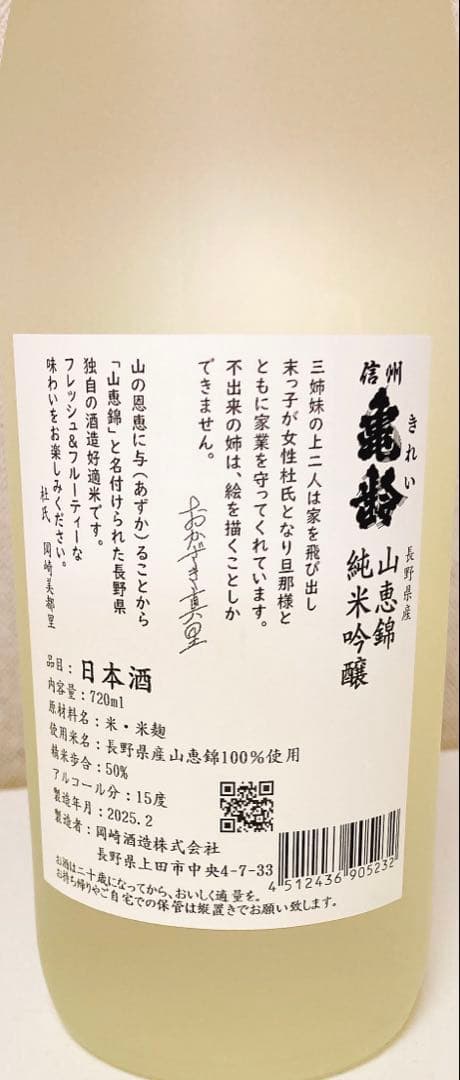 信州
亀齢
きれい
長野県産
山恵錦
純米吟醸
三姉妹の上二人は家を飛び出し
末っ子が女性杜氏となり旦那様と
ともに家業を守ってくれています。
不出来の姉は、絵を描くことしか
できません。
おかざき真里
山の恩恵に与(あずか)ることから
「山恵錦」と名付けられた長野県
独自の酒造好適米です。
フレッシュ&フルーティーな
味わいをお楽しみください。
杜氏 岡崎美都里
品目:日本酒
内容量:720ml
原材料名:米・米麹
使用米名:長野県産山恵錦100%使用
精米歩合:50%
アルコール分:15度
製造年月:2025.2
製造者:岡崎酒造株式会社
長野県上田市中央4-7-33
お酒は二十歳になってから、おいしく適量を。
お持ち帰りやご自宅での保管は縦置きでお願い致します。
4512436905232